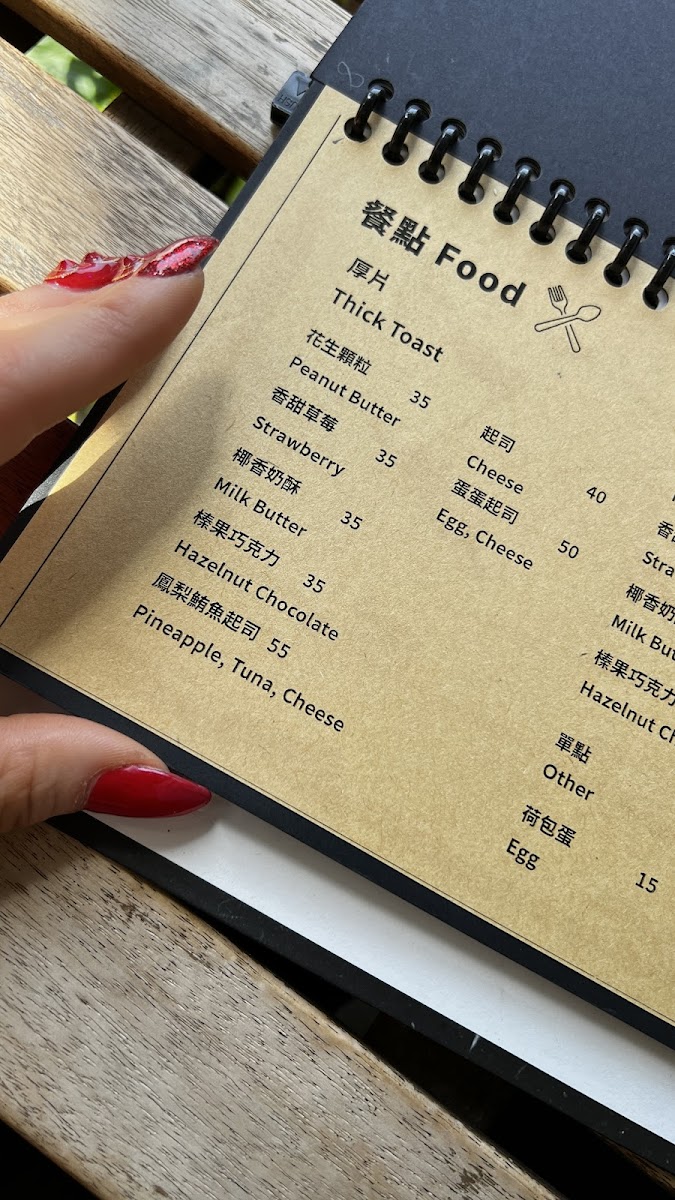 餐點 Food
厚片
Thick Toast
花生顆粒 35
Peanut Butter
香甜草莓 35
Strawberry
椰香奶酥 35
Milk Butter
榛果巧克力 35
Hazelnut Chocolate
鳳梨鮪魚起司 55
Pineapple, Tuna, Cheese
起司 40
Cheese
蛋蛋起司 50
Egg, Cheese
椰香奶
Milk
榛果巧克力
Hazelnut
單點
Other
荷包蛋 15
Egg